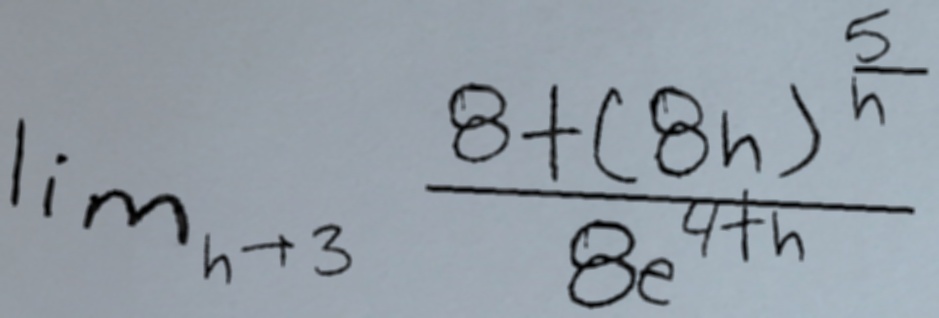 \lim_{h \to 3} \frac{8+(8h)^{\frac{5}{h}}}{8e^{4+h}}